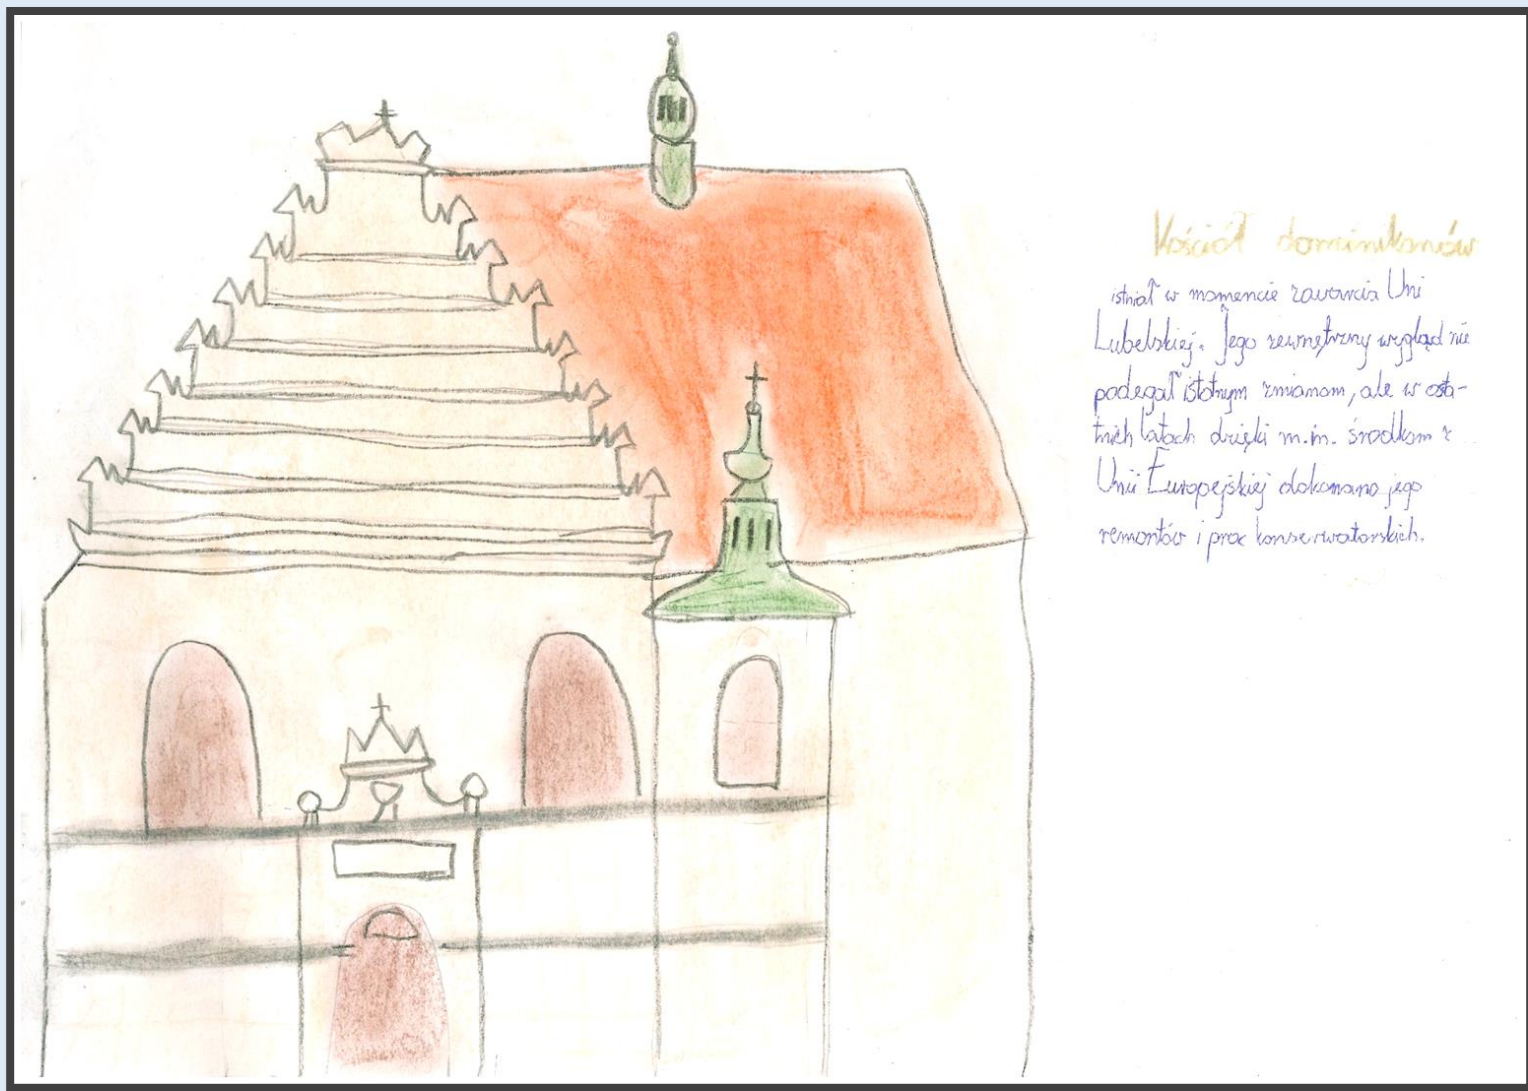 Kościół dominikanów
istniał w momencie zawarcia Uni
Lubelskiej. Jego zewnętrzny wygląd nie
podegał istotnym zmianom, ale w osta-
tnich latach dzięki m.in. środkom z
Unii Europejskiej dokonano jego
remontów i prac konserwatorskich.